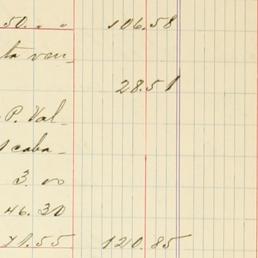 50. " " 106.58
ta ven_
28.51
P. Val_
caba_
3.00
46.30
71.55 120.85